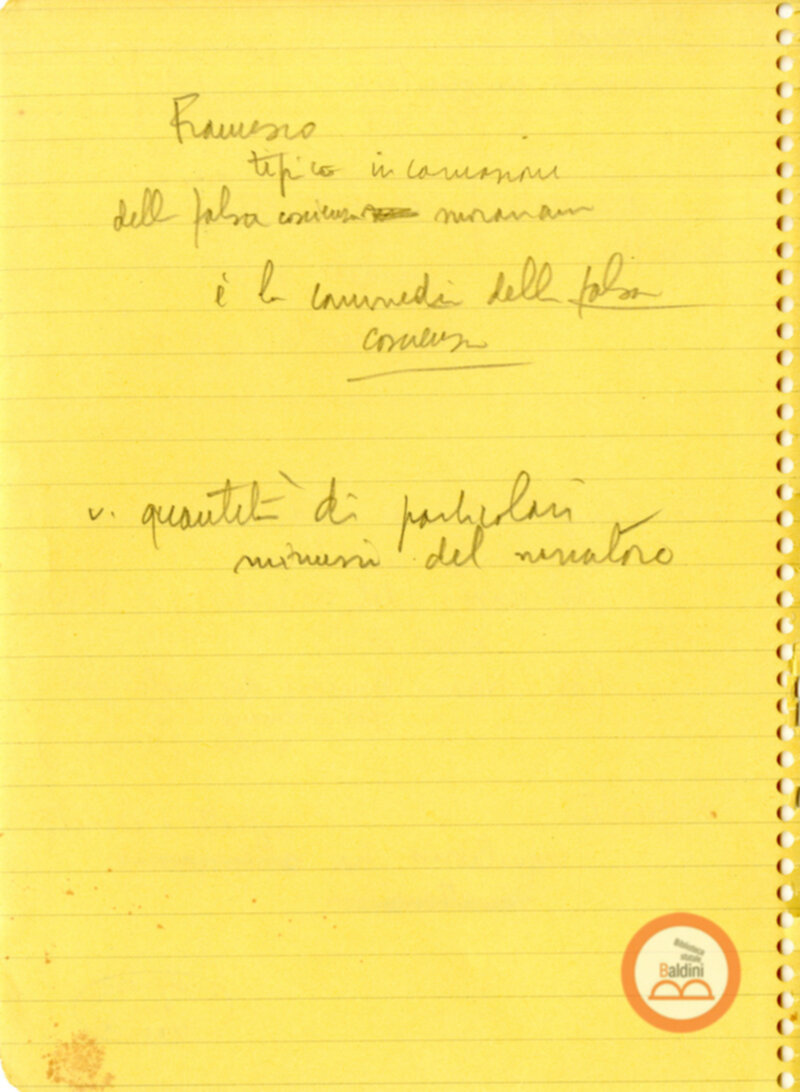 Francesco
tipica incarnazione
della falsa coscienza moraviana
è la commedia della falsa
coscienza
v. quantità di particolari
minimi del narratore
Biblioteca
statale
Baldini